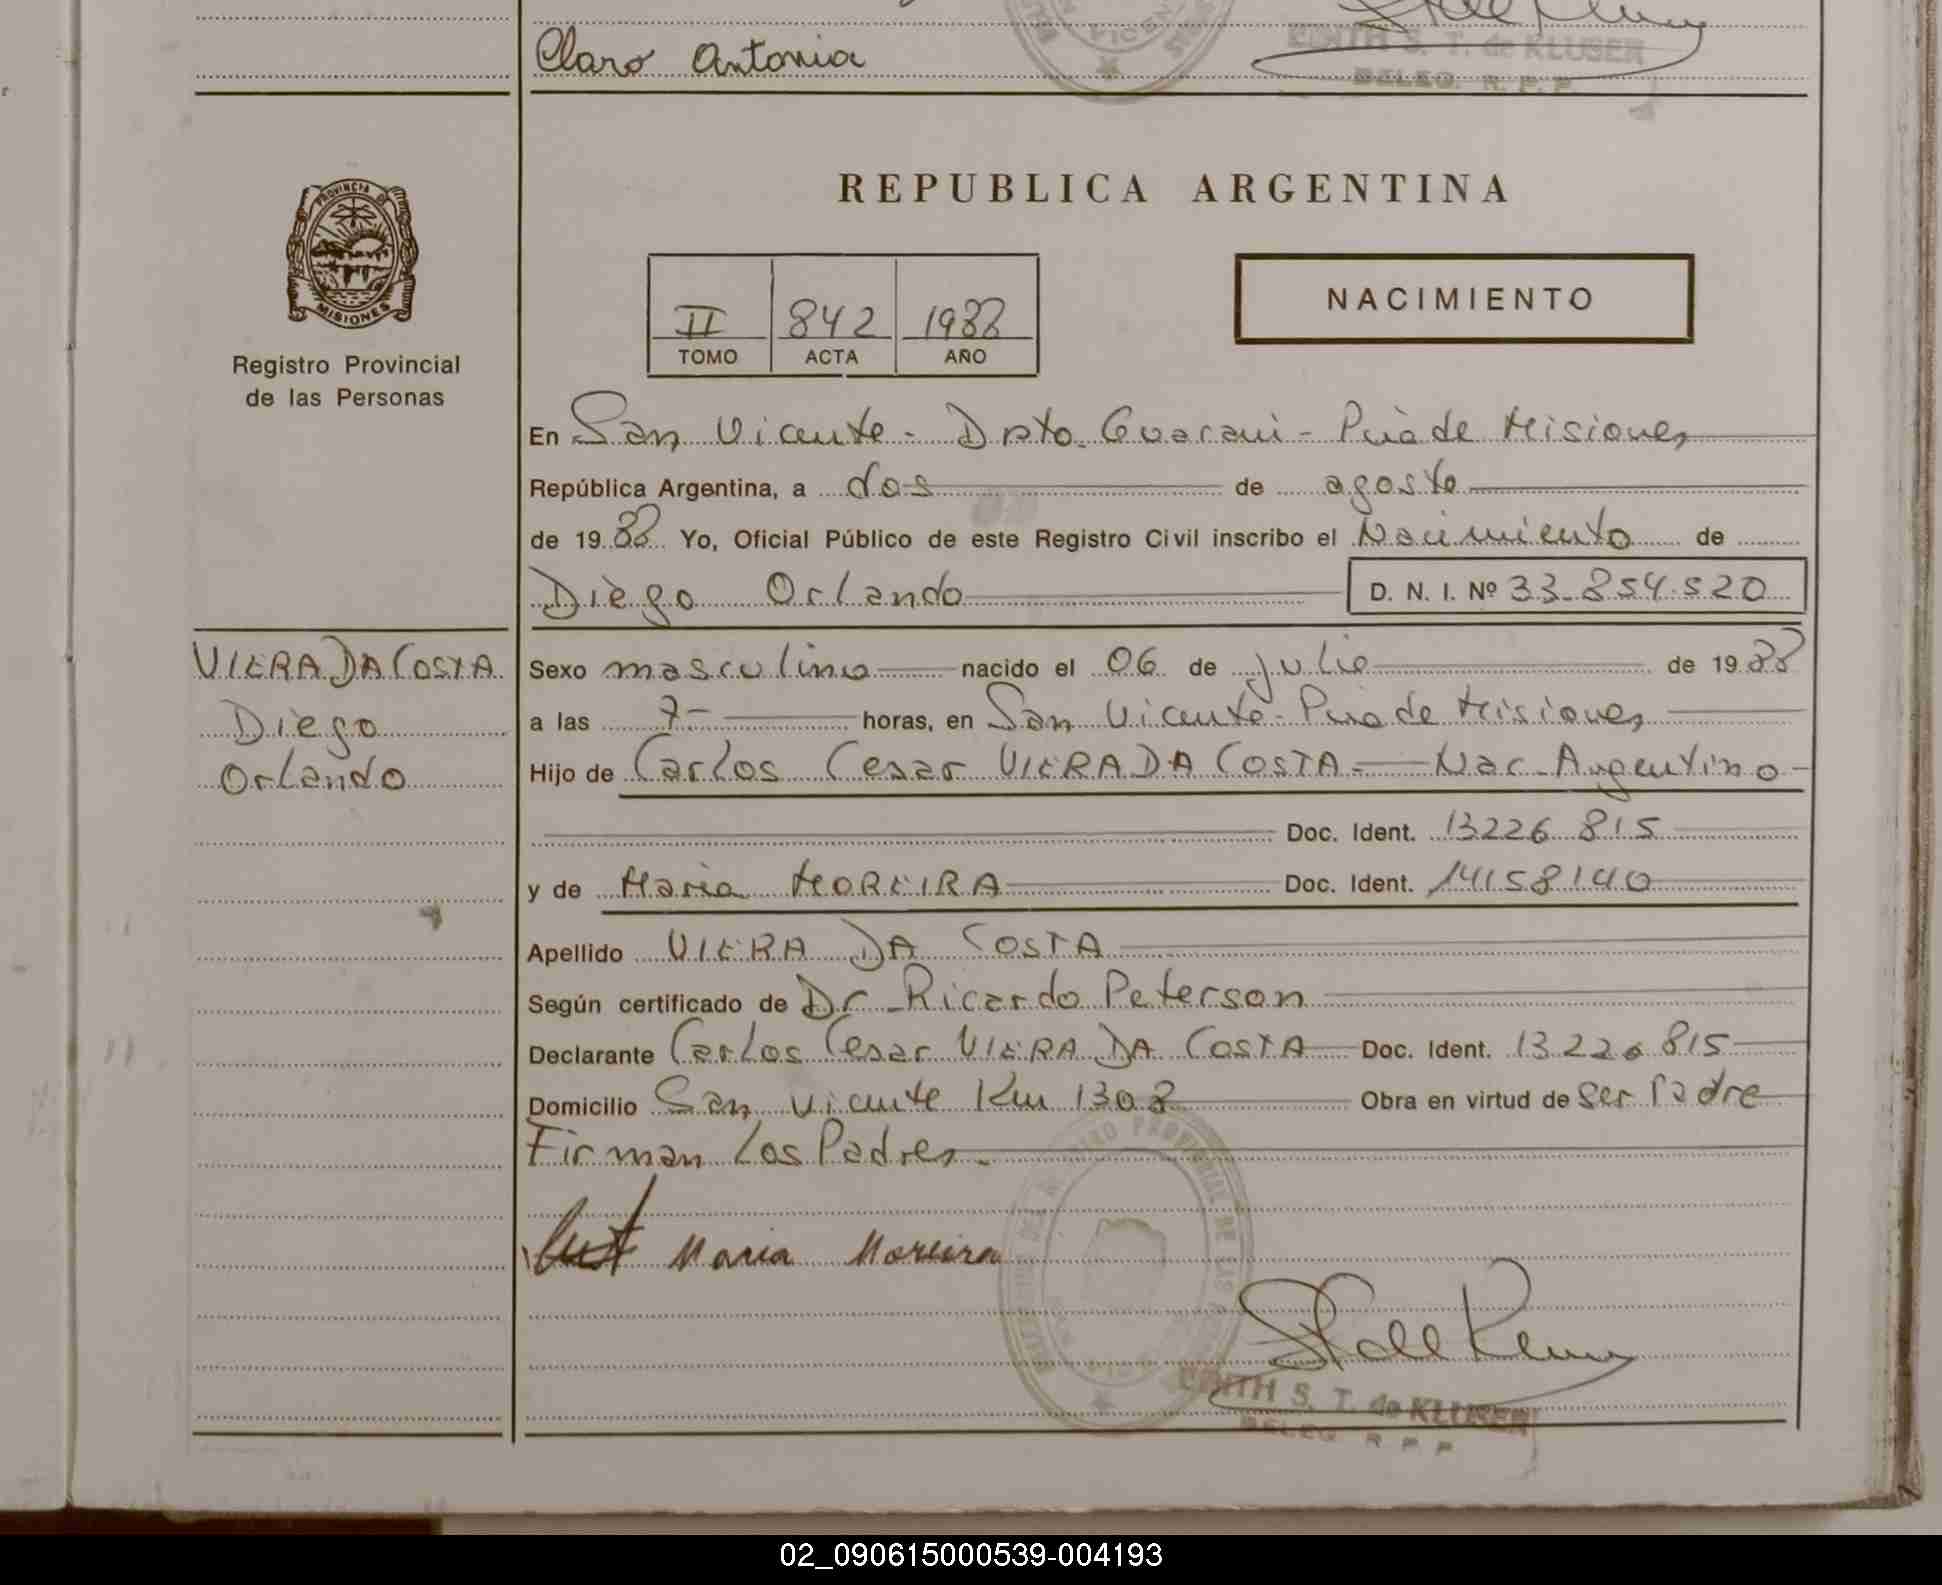 Claro Antonia
EDITH S. T. de KLUSER
DELEG. R. P. P.
PROVINCIA DE
MISIONES
Registro Provincial
de las Personas
REPUBLICA ARGENTINA
II 842 1988
TOMO ACTA AÑO
NACIMIENTO
En San Vicente - Dpto. Guarani - Pcia de Misiones
República Argentina, a dos de agosto
de 1988 Yo, Oficial Público de este Registro Civil inscribo el Nacimiento de
Diego Orlando D. N. I. Nº 33.854.520
VIERA DA COSTA
Diego
Orlando
Sexo masculino nacido el 06 de julio de 1988
a las 7- horas, en San Vicente - Pcia de Misiones
Hijo de Carlos Cesar VIERA DA COSTA - Nac. Argentino
Doc. Ident. 13226 815
y de Maria MOREIRA Doc. Ident. 14158140
Apellido VIERA DA COSTA
Según certificado de Dr. Ricardo Peterson
Declarante Carlos Cesar VIERA DA COSTA Doc. Ident. 13226815
Domicilio San Vicente Km 1308 Obra en virtud de Ser Padre
Firman Los Padres.
Maria Moreira
EDITH S. T. de KLUSER
DELEG R P P
02_090615000539-004193